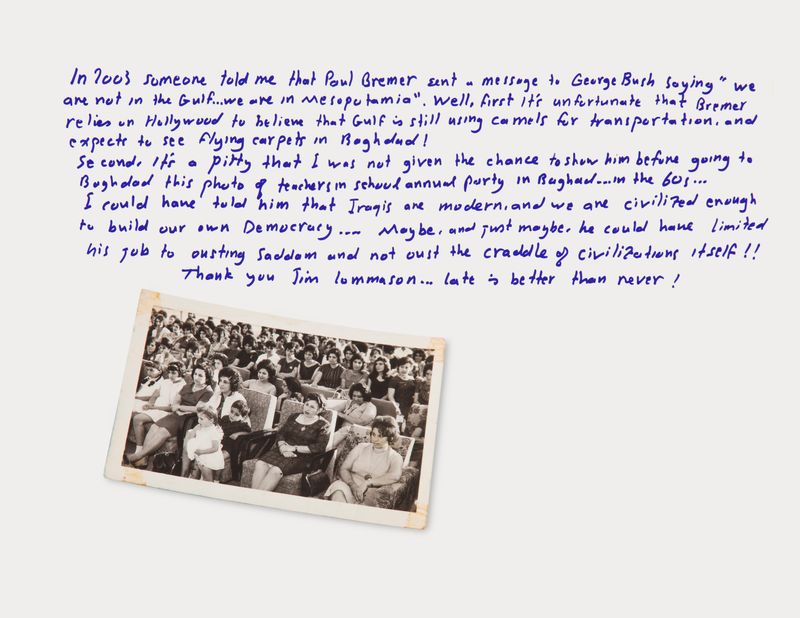 In 2003 someone told me that Paul Bremer sent a message to George Bush saying" we
are not in the Gulf...we are in Mesopotamia". Well, first it's unfortunate that Bremer
relies on Hollywood to believe that Gulf is still using camels for transportation, and
expects to see flying carpets in Baghdad!
Second, it's a pitty that I was not given the chance to show him before going to
Baghdad this photo of teachers in school annual party in Baghad....in the 60s...
I could have told him that Iraqis are modern, and we are civilized enough
to build our own Democracy.... Maybe, and just maybe, he could have limited
his job to ousting Saddam and not oust the craddle of civilizations itself!!
Thank you Jim Lommason... late is better than never!